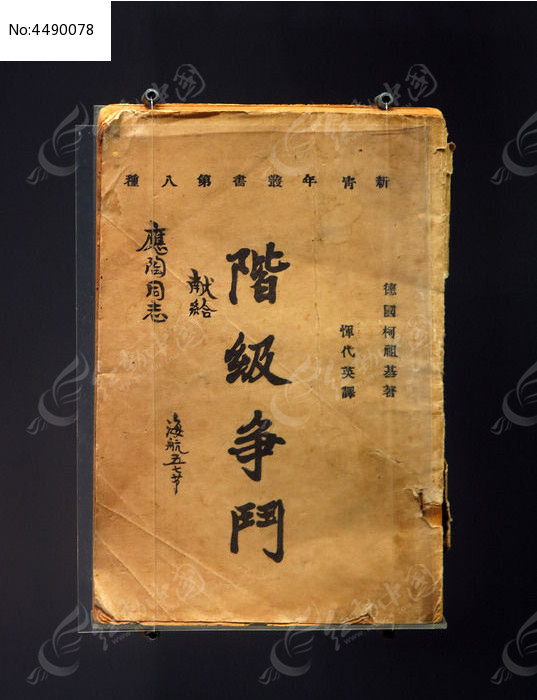 No:4490078
新青年叢書第八種
德國柯祖基著
惲代英譯
階級争鬥
献給
應陶同志
海航五七节